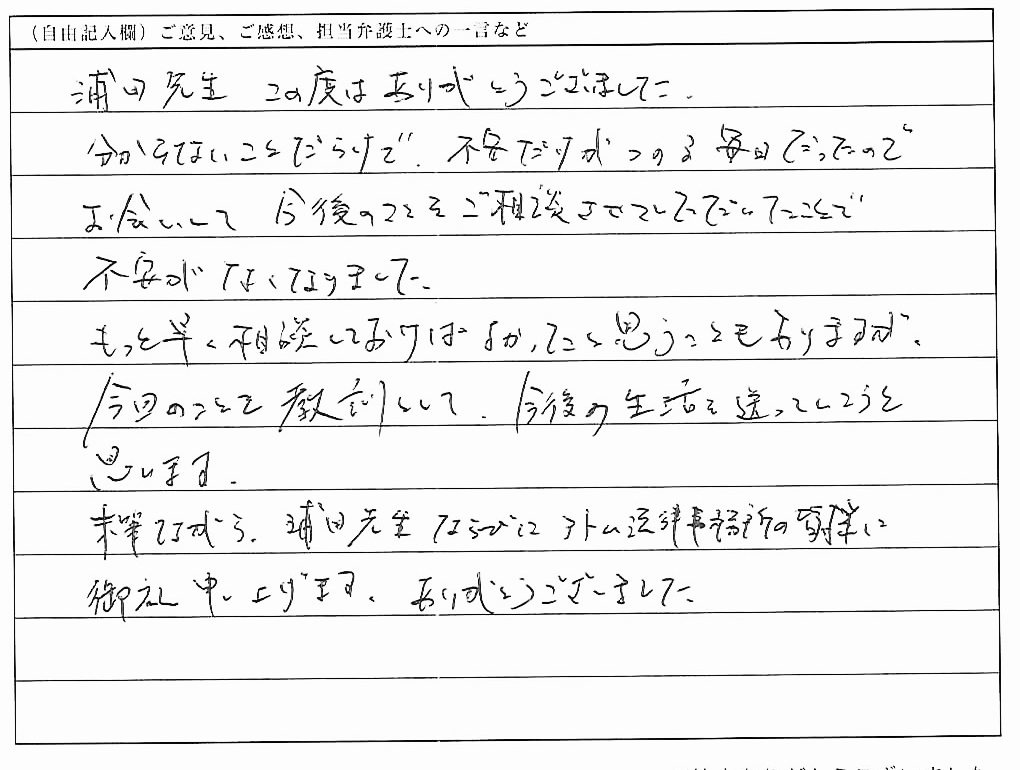 (自由記入欄)ご意見、ご感想、担当弁護士への一言など
浦田先生 この度はありがとうございました.
分からないことだらけで、不安だけがつのる毎日だったので
お会いして 今後のことをご相談させていただいたことで
不安がなくなりました.
もっと早く相談しておけばよかったと思うこともありますが、
今回のことを教訓として、今後の生活を送っていこうと
思います.
末筆ながら、浦田先生ならびにアトム法律事務所の皆様に
御礼申し上げます、ありがとうございました.